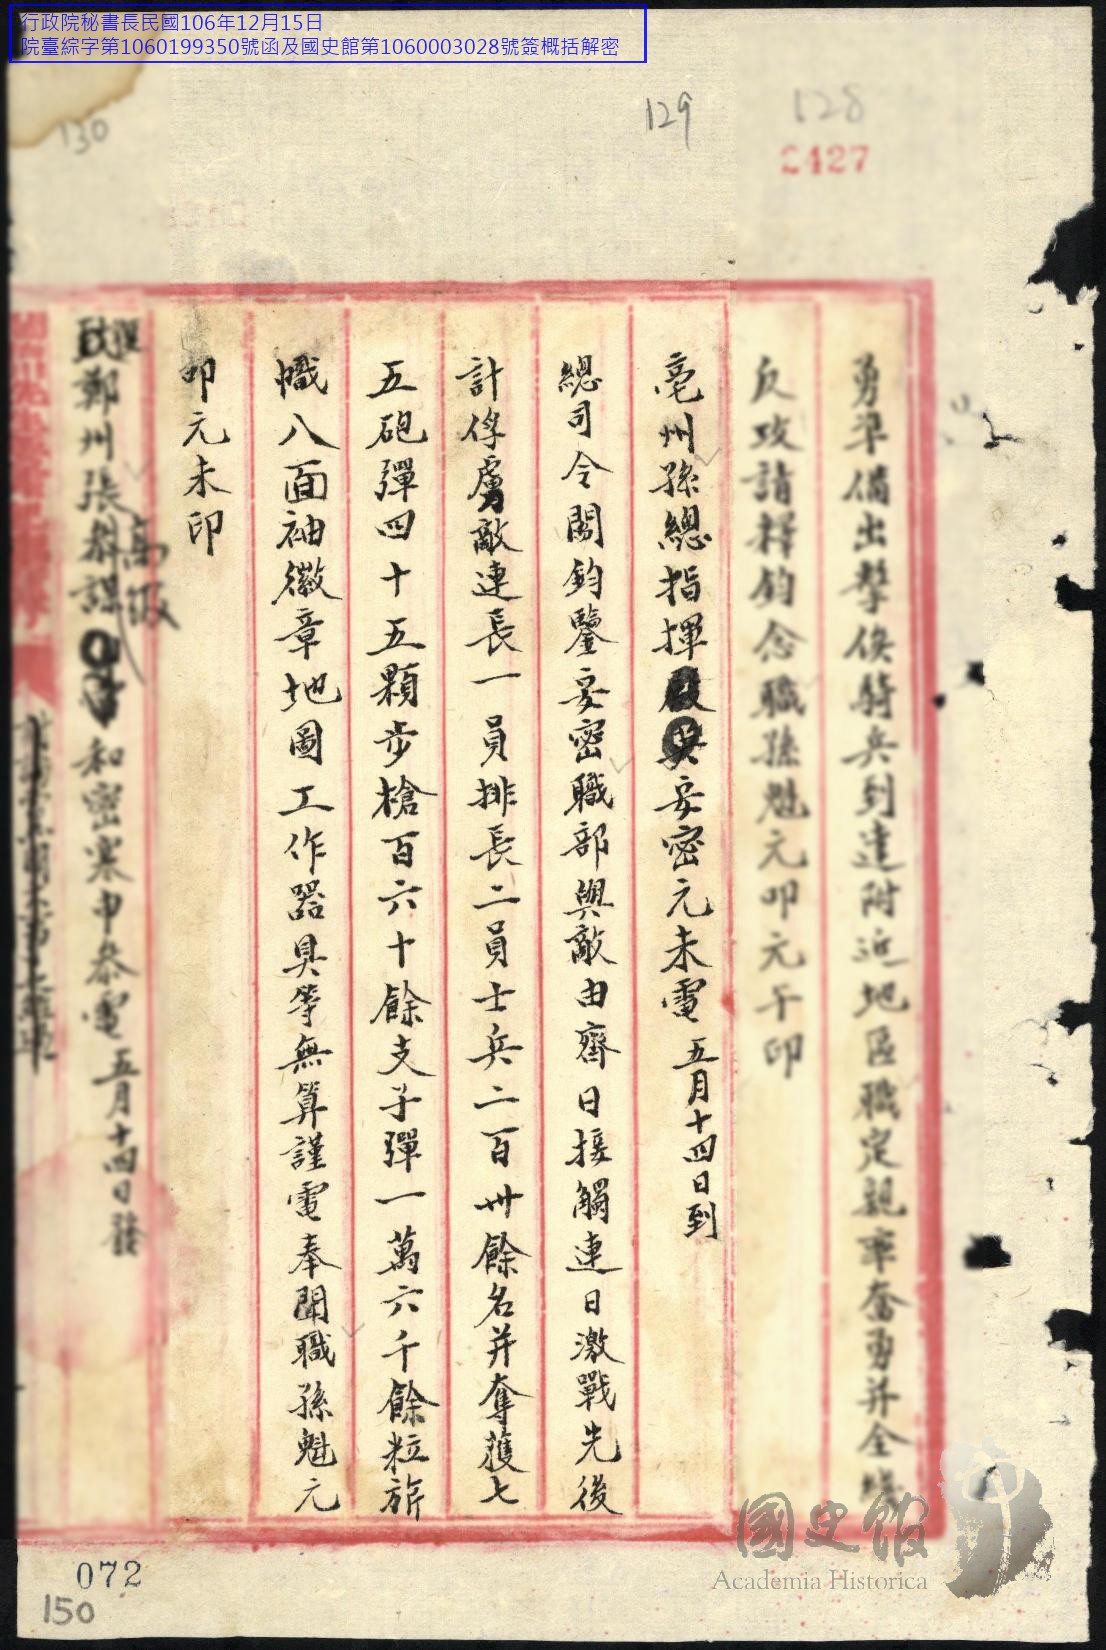 行政院秘書長民國106年12月15日
院臺綜字第1060199350號函及國史館第1060003028號簽概括解密
128
129
130
2427
勇準備出擊俟騎兵到達附近地區職定親率奮勇并全線
反攻請釋鈞念職孫魁元叩元午印
亳州孫總指揮妥密元未電五月十四日到
總司令閻鈞鑒妥密職部與敵由齊日接觸連日激戰先後
計俘虜敵連長一員排長二員士兵二百卅餘名并奪獲七
五砲彈四十五顆步槍百六十餘支子彈一萬六千餘粒旂
幟八面袖徽章地圖工作器具等無算謹電奉聞職孫魁元
叩元未印
鄭州張高級參謀和密寒申參電五月十四日發
國史館
Academia Historica
072
150